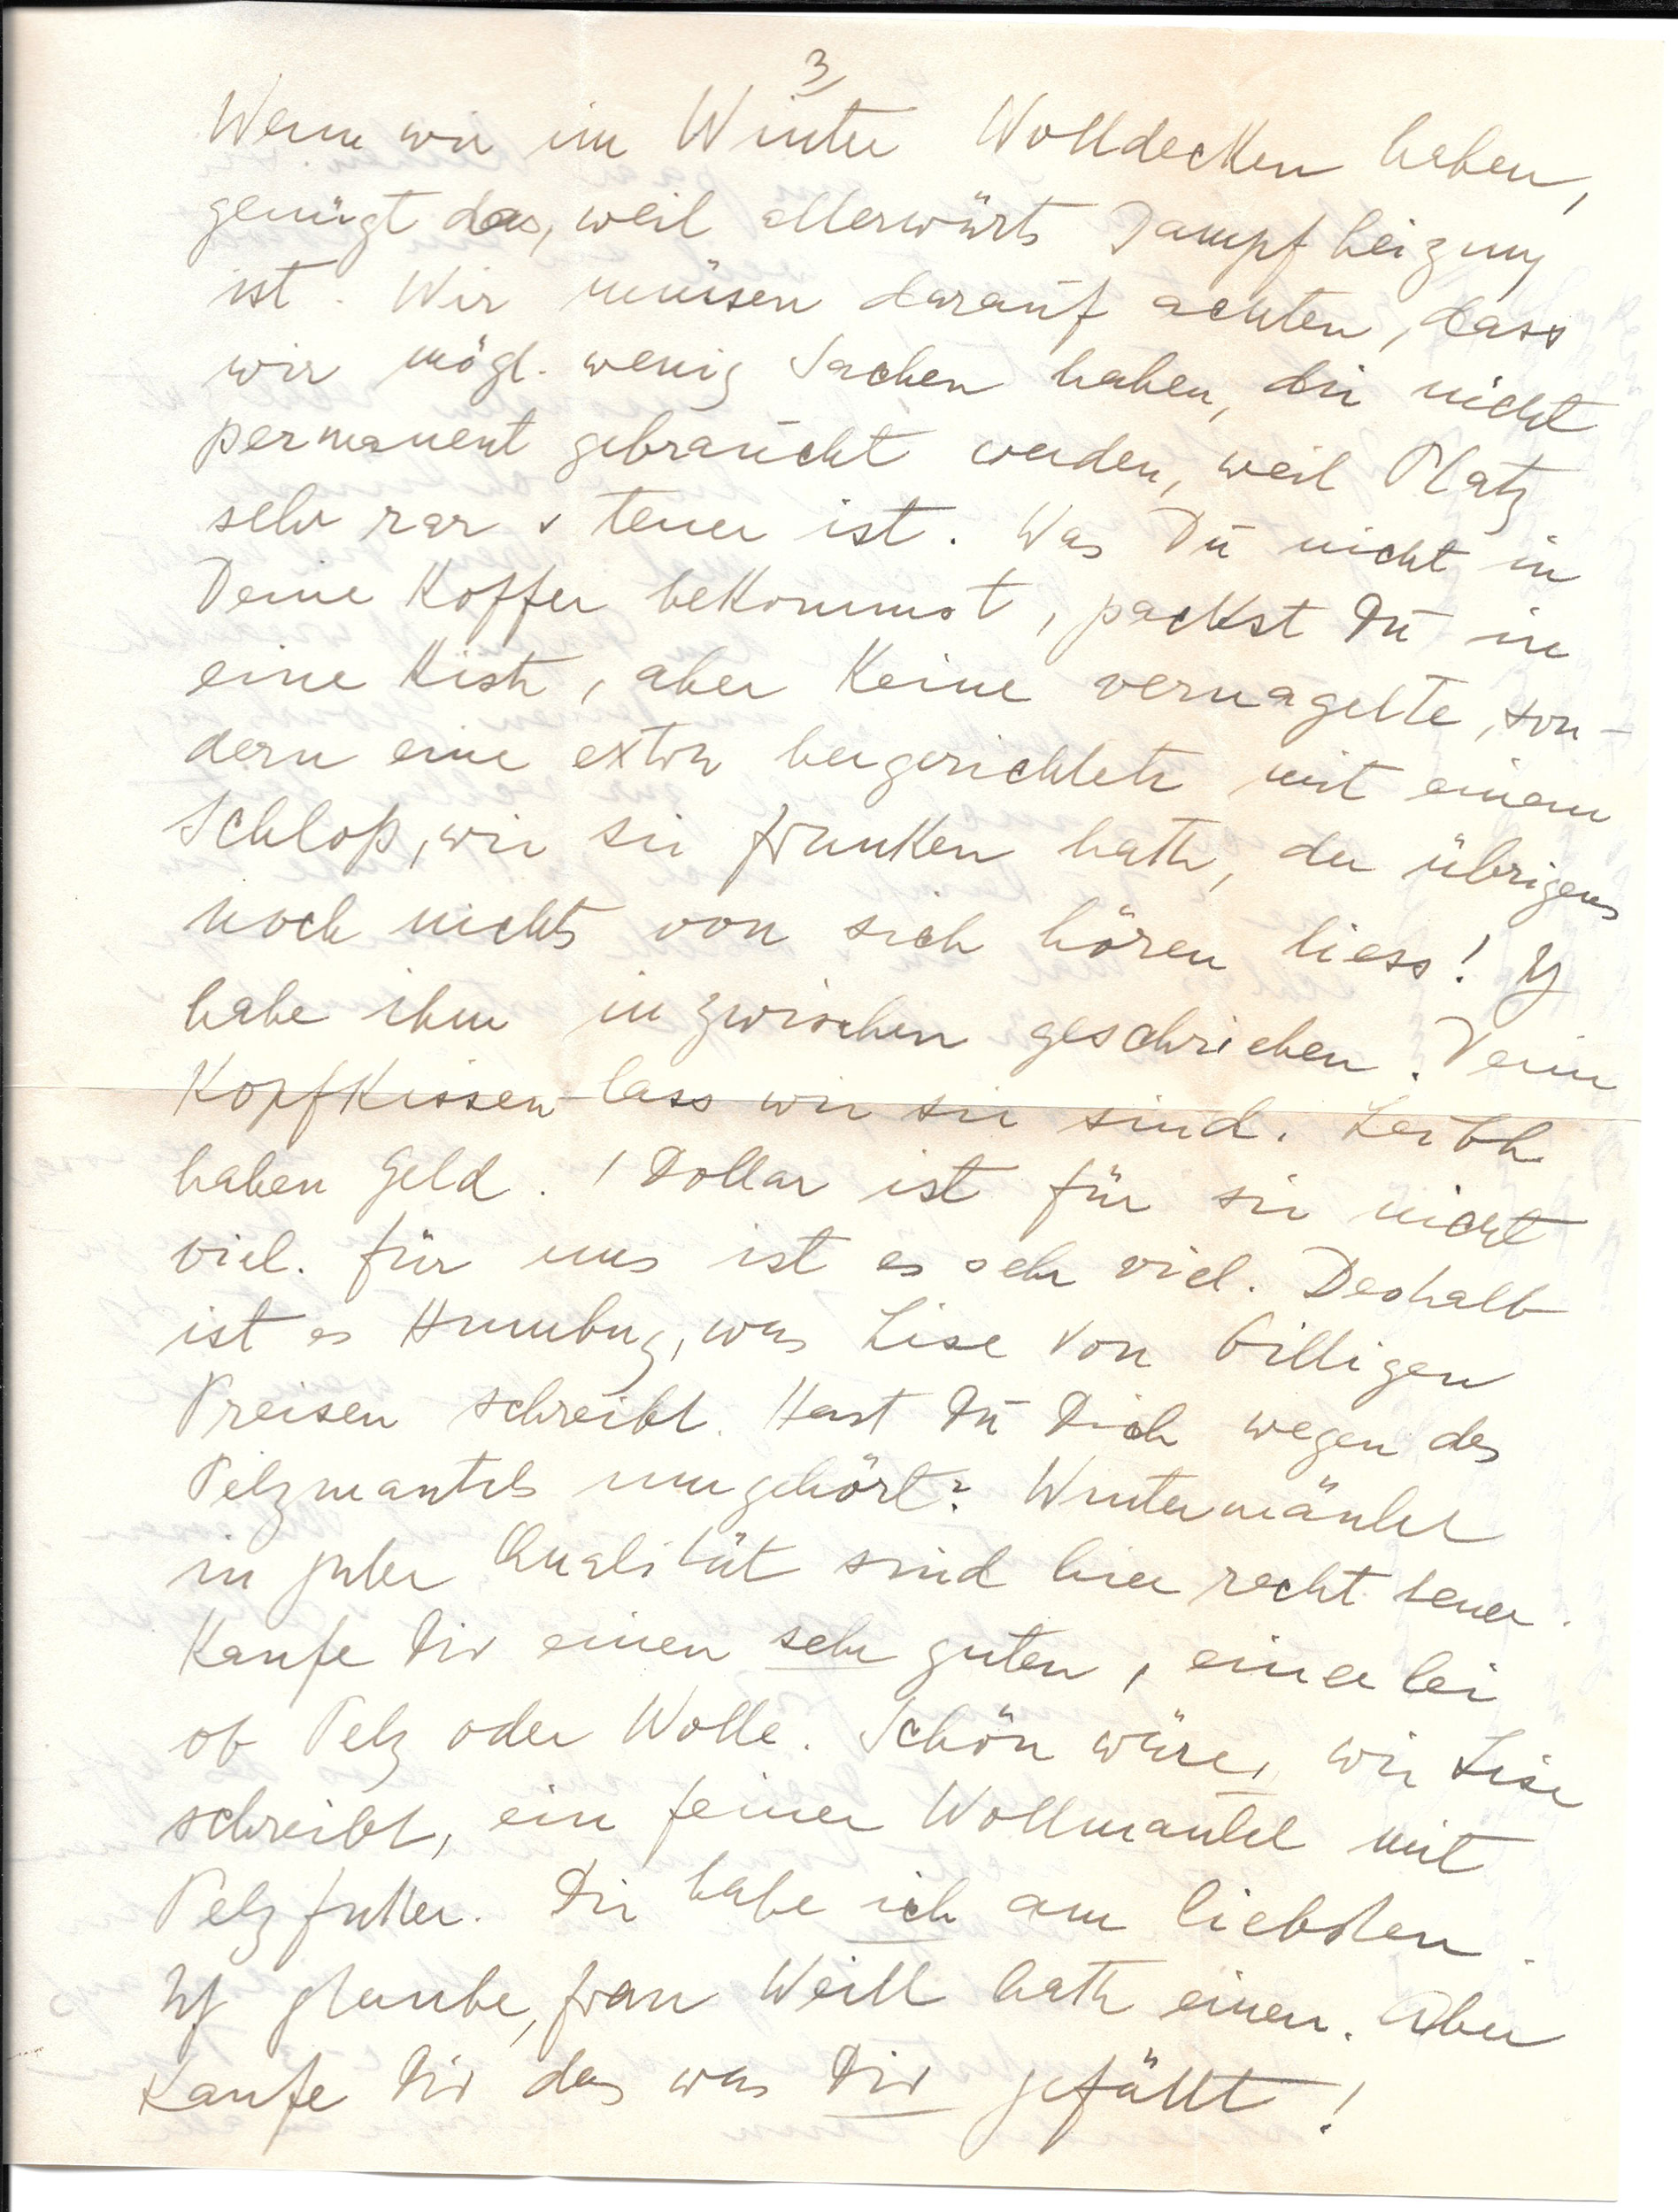 3
Wenn wir im Winter Wolldecken haben,
genügt das, weil allerwärts Dampfheizung
ist. Wir müssen darauf achten, dass
wir mögl. wenig Sachen haben, die nicht
permanent gebraucht werden, weil Platz
sehr rar & teuer ist. Was Du nicht in
Deine Koffer bekommst, packst Du in
eine Kiste, aber keine vernagelte, son-
dern eine extra hergerichtete mit einem
Schloß, wie sie Franken hatte, der übrigens
noch nichts von sich hören liess! Ich
habe ihm inzwischen geschrieben. Deine
Kopfkissen lass wie sie sind.
haben Geld. 1 Dollar ist für sie nicht
viel. für uns ist es sehr viel. Deshalb
ist es Humbug, was Lise von billigen
Preisen schreibt. Hast Du Dich wegen des
Pelzmantels umgehört? Wintermäntel
in guter Qualität sind hier recht teuer.
Kaufe Dir einen sehr guten, einerlei
ob Pelz oder Wolle. Schön wäre, wie Lise
schreibt, ein feiner Wollmantel mit
Pelzfutter. Die habe ich am liebsten.
Ich glaube, Frau Weill hatte einen. Aber
Kaufe Dir das was Dir gefällt!